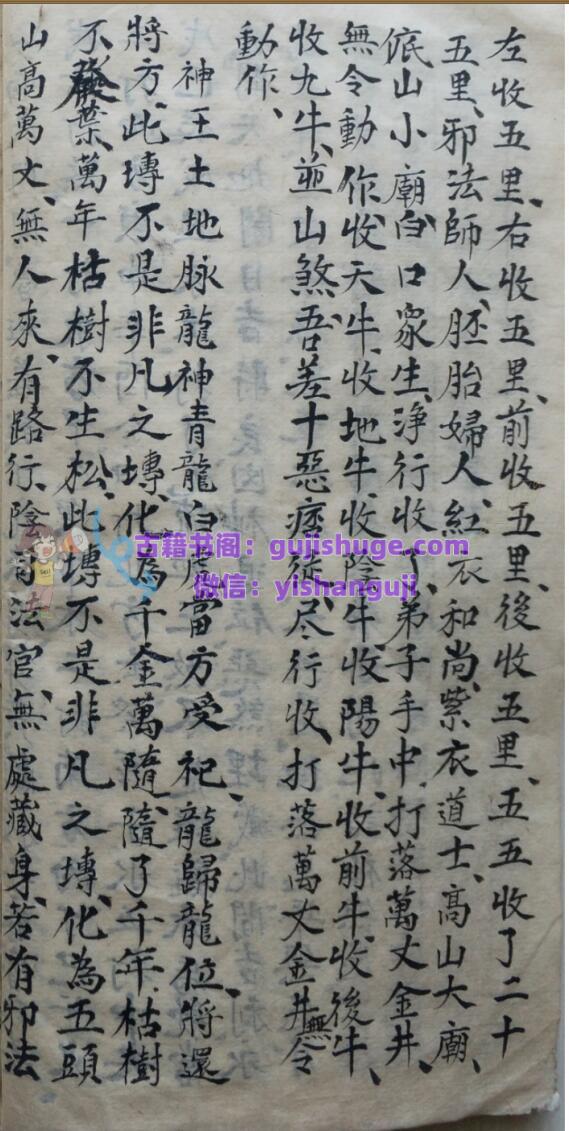 左收五里、右收五里、前收五里、後收五里、五五收了二十
五里、邪法師人、胚胎婦人、紅衣和尚、紫衣道士、高山大廟、
底山小廟、白口衆生、净行收了、弟子手中、打落萬丈金井、
無令動作、收天牛、收地牛、收陰牛、收陽牛、收前牛、收後牛、
收九牛、並山煞、吾差十惡 尽行收、打落萬丈金井、無令
動作、
神王土地脉龍神青龍白虎當方受祀、龍歸龍位、將還
將方、此塼不是非凡之塼、化為千金萬隨、隨了千年枯樹
不發葉、萬年枯樹不生松、此塼不是非凡之塼、化為五頭
山高萬丈、無人來、有路行、陰司法官、無處藏身、若有邪法
古籍书阁：gujishuge.com
微信：yishanguji